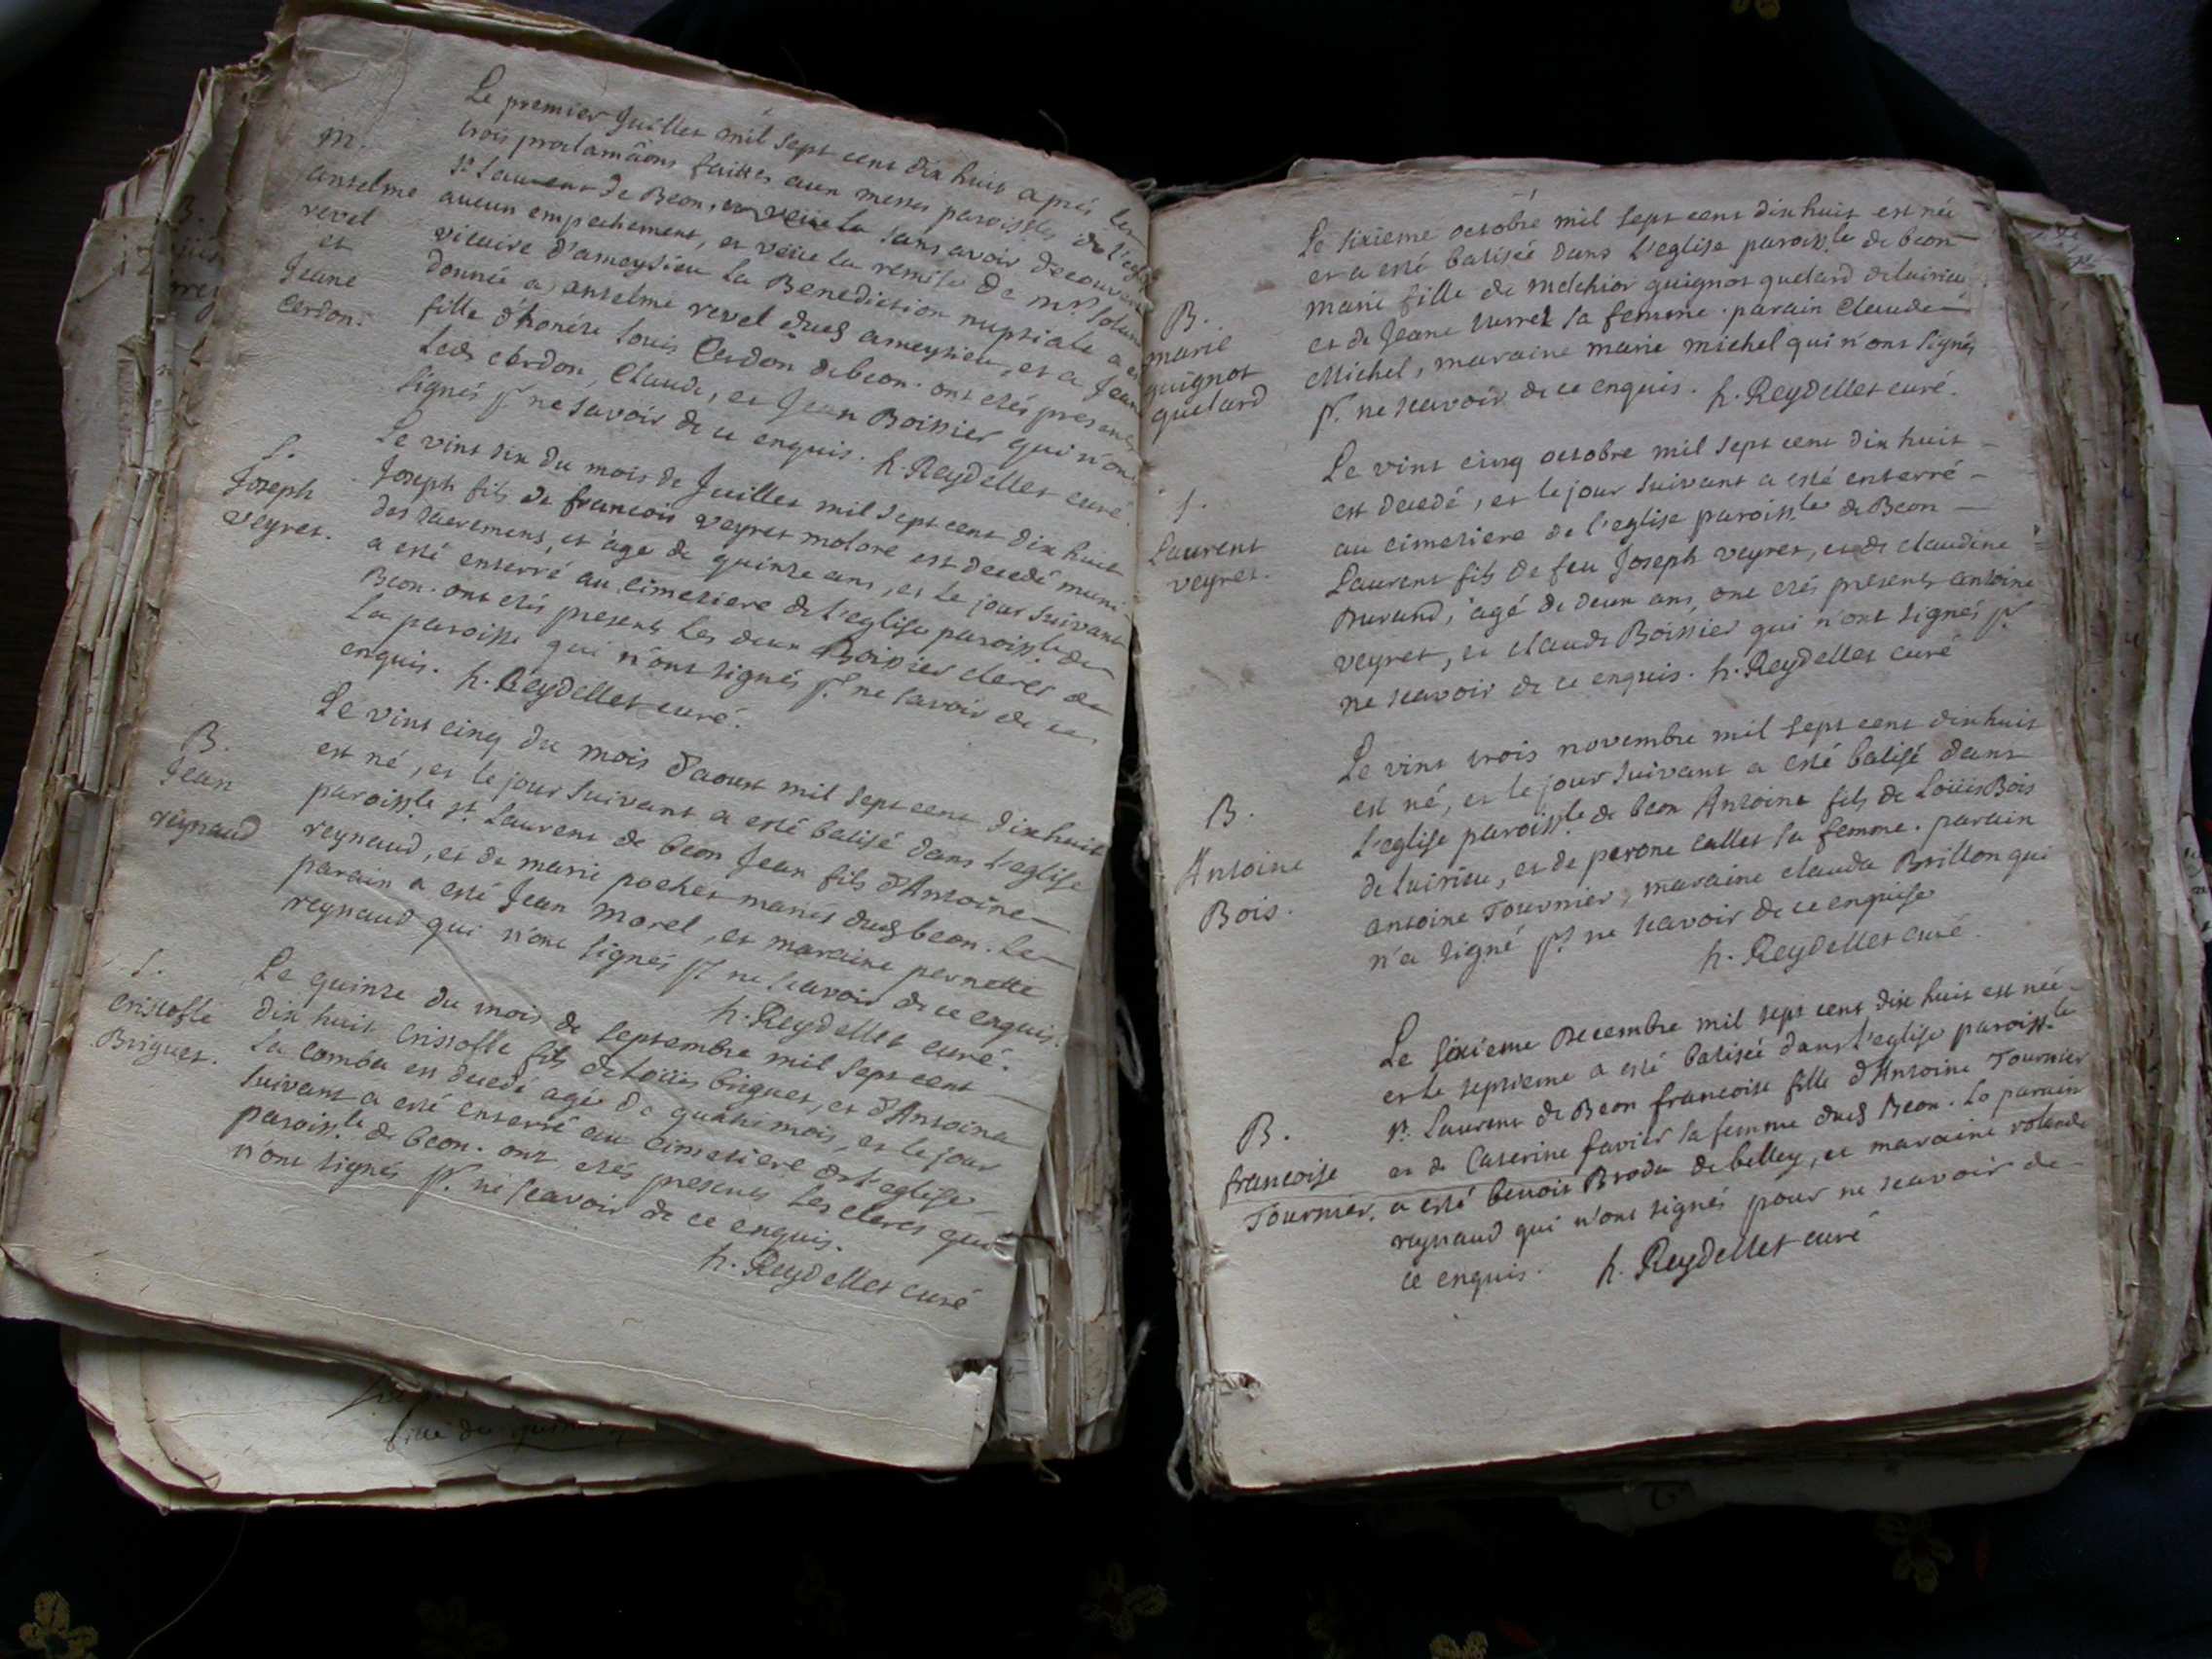 Le premier Juillet mil sept cent dix huit aprés les
trois proclamãons faittes aux messes paroissles de l'eglise
St Laurent de Beon, sans avoir decouvert
aucun empechement, et veüe la remise de mr.
vicaire d'ameysieu la Benediction nuptiale a esté
donnée a anselme revel dud ameysieu, et a Jeane
fille d'honéte Louis Cerdon de beon. ont etés presents
Led. cerdon, Claude, et Jean Boissier qui n'ont
signés pr. ne savoir de ce enquis. h. Reydellet curé.
M.
anselme
revel
et
Jeane
Cerdon.
Le vint six du mois de Juillet mil sept cent dix huit
Joseph fils de francois veyret molore est decedé muni
des sacremens, et agé de quinze ans, et le jour suivant
a esté enterré au cimetiere de l'eglise paroissle de
Beon. ont etés presents Les deux Boissier clercs de
La paroisse qui n'ont signés pr. ne savoir de ce
enquis. h. Reydellet curé.
S.
Joseph
veyret.
Le vint cinq du mois d'aoust mil sept cent dix huit
est né, et le jour suivant a esté batisé dans l'eglise
paroissle st. Laurent de beon Jean fils d'Antoine
reynaud, et de marie pochet mariés dud beon. Le
parain a esté Jean morel, et maraine pernette
reynaud qui n'ont signés pr. ne scavoir de ce enquis.
h. Reydellet curé.
B.
Jean
reynaud
Le quinze du mois de septembre mil sept cent
dix huit Cristofle fils de Loüis briguet, et d'Antoina
La comba est decedé agé de quatre mois, et le jour
suivant a esté enterré au cimetiere de l'eglise
paroissle de beon. ont etés presents Les clercs qui
n'ont signés pr. ne scavoir de ce enquis.
h. Reydellet curé
S.
Cristofle
Briguet.
Le sixieme octobre mil sept cent dix huit est née
et a esté batisée dans l'eglise paroissle de beon
marie fille de melchior guignot quelard de luirieu
et de Jeane sa femme. parain Claude
Michel, maraine marie michel qui n'ont signés
pr. ne scavoir de ce enquis. h. Reydellet curé.
B.
marie
guignot
quelard
Le vint cinq octobre mil sept cent dix huit
est decedé, et le jour suivant a esté enterré
au cimetiere de l'eglise paroissle de Beon
Laurent fils de feu Joseph veyret, et de claudine
Durand, agé de deux ans, ont etés presents antoine
veyret, et claude Boissier qui n'ont signés pr.
ne scavoir de ce enquis. h. Reydellet curé
S.
Laurent
veyret.
Le vint trois novembre mil sept cent dix huit
est né, et le jour suivant a esté batisé dans
L'eglise paroissle de beon Antoine fils de Loüis Bois
de luirieu, et de perone callet sa femme. parain
antoine Tournier, maraine clauda Brillon qui
n'a signé pr. ne scavoir de ce enquise
h. Reydellet curé.
B.
Antoine
Bois.
Le sixieme Decembre mil sept cent dix huit est née
et le septieme a esté batisée dans l'eglise paroissle
st. Laurent de Beon francoise fille d'Antoine Tournier
et de Caterine favier sa femme dud Beon. Le parain
a esté benoit Broda de belley, et maraine rolande
reynaud qui n'ont signés pour ne scavoir de
ce enquis. h. Reydellet curé
B.
francoise
Tournier.